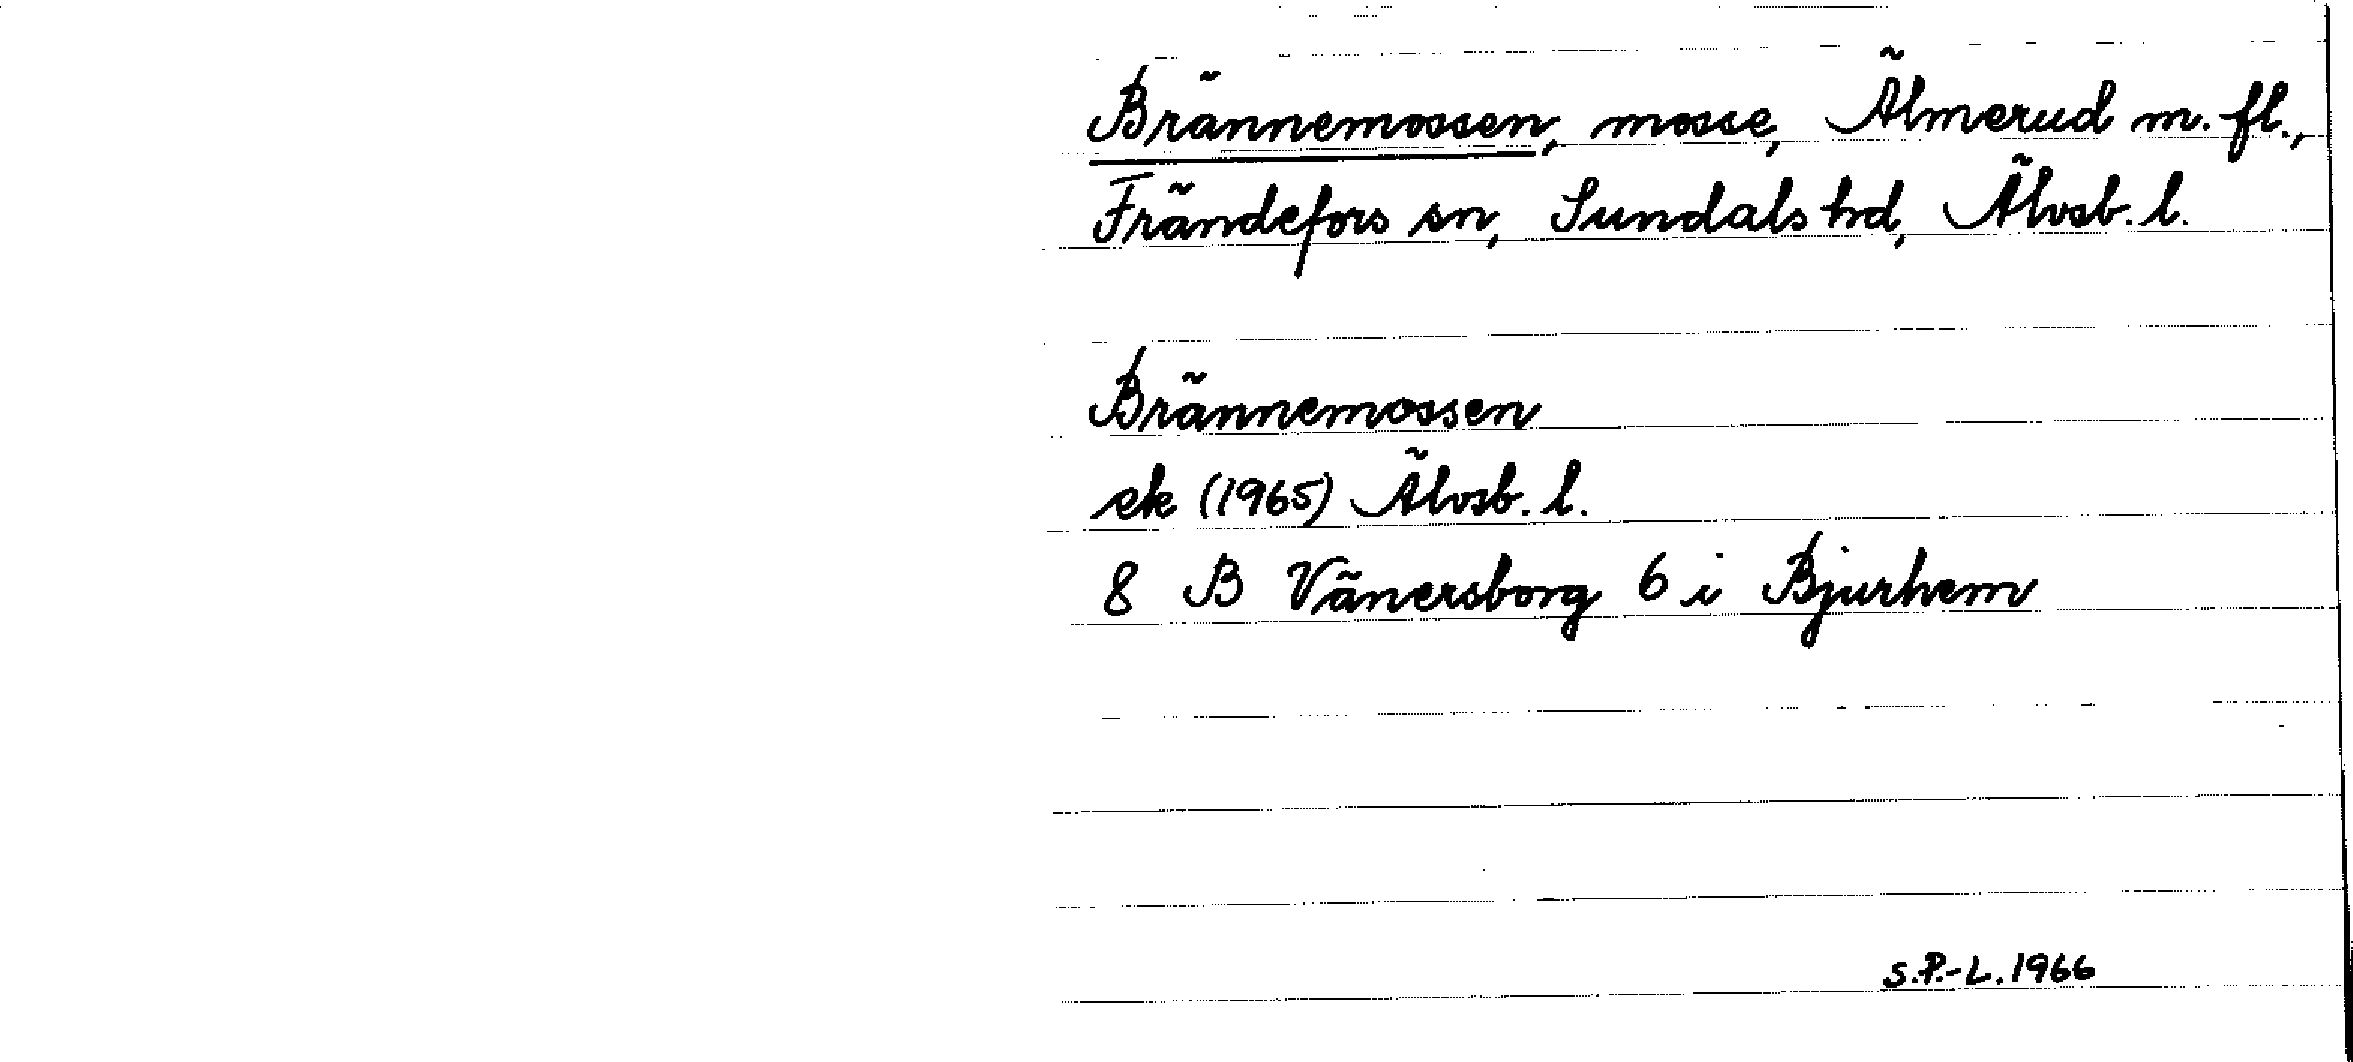 Brännemossen, mosse, Älmerud m. fl.,
Frändefors sn, Sundals hd, Älvsb. l.
Brännemossen
ek (1965) Älvsb. l.
8 B Vänersborg 6 i Bjurhem
S.P.-L. 1966